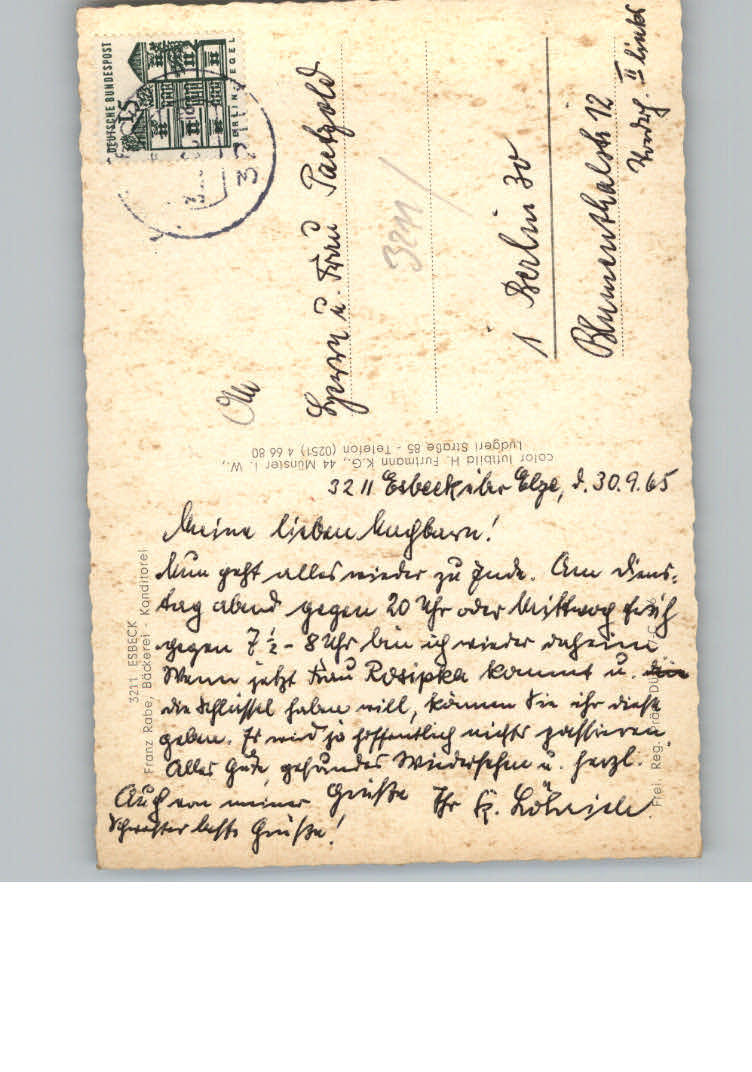 DEUTSCHE BUNDESPOST
15
BERLIN TEGEL
3211
Herrn u. Frau Paetzold
3211
1 Berlin 30
Blumenthalstr 12
Vordh. II links
color luftbild H. Furtmann K.G., 44 Münster i. W.,
Ludgeri Straße 85 - Telefon (0251) 4 66 80
3211 ESBECK
Franz Rabe, Bäckerei - Konditorei
Frei Reg. Präs.
3211 Esbeck über Elze, d. 30.9.65
Meine lieben Nachbarn!
Nun geht alles wieder zu Ende. Am Diens-
tag abend gegen 20 Uhr oder Mittwoch früh
gegen 7 ½ - 8 Uhr bin ich wieder daheim
Wenn jetzt Frau Rosipka kommt u. die
die Schlüssel haben will, können Sie ihr diese
geben. Es wird ja hoffentlich nichts passieren
Alles Gute, gesundes Wiedersehen u. herzl.
Grüße Ihr K.
Auch von meiner
Schwester beste Grüße!